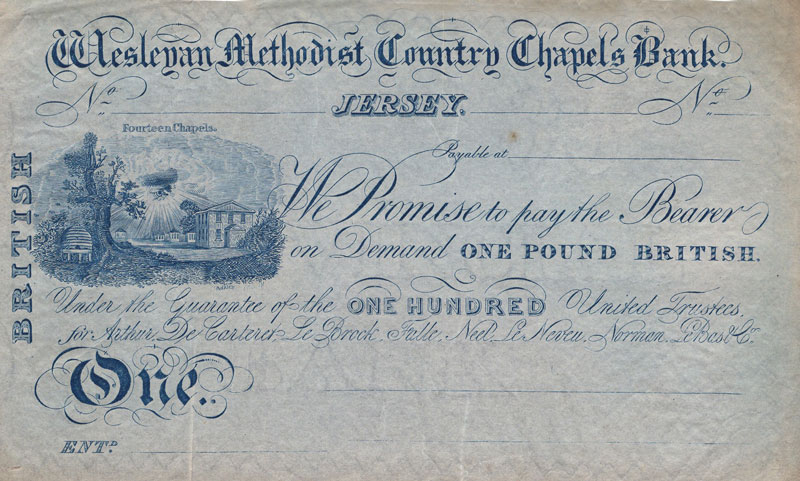 Wesleyan Methodist Country Chapels Bank.
No. JERSEY. No.
Fourteen Chapels.
Payable at
BRITISH
We Promise to pay the Bearer
on Demand ONE POUND BRITISH.
Under the Guarantee of the ONE HUNDRED United Trustees,
for Arthur, De Carteret, Le Brock, Falle, Neel, Le Neveu, Norman, Le Bas & Co.
One.
ENTD.